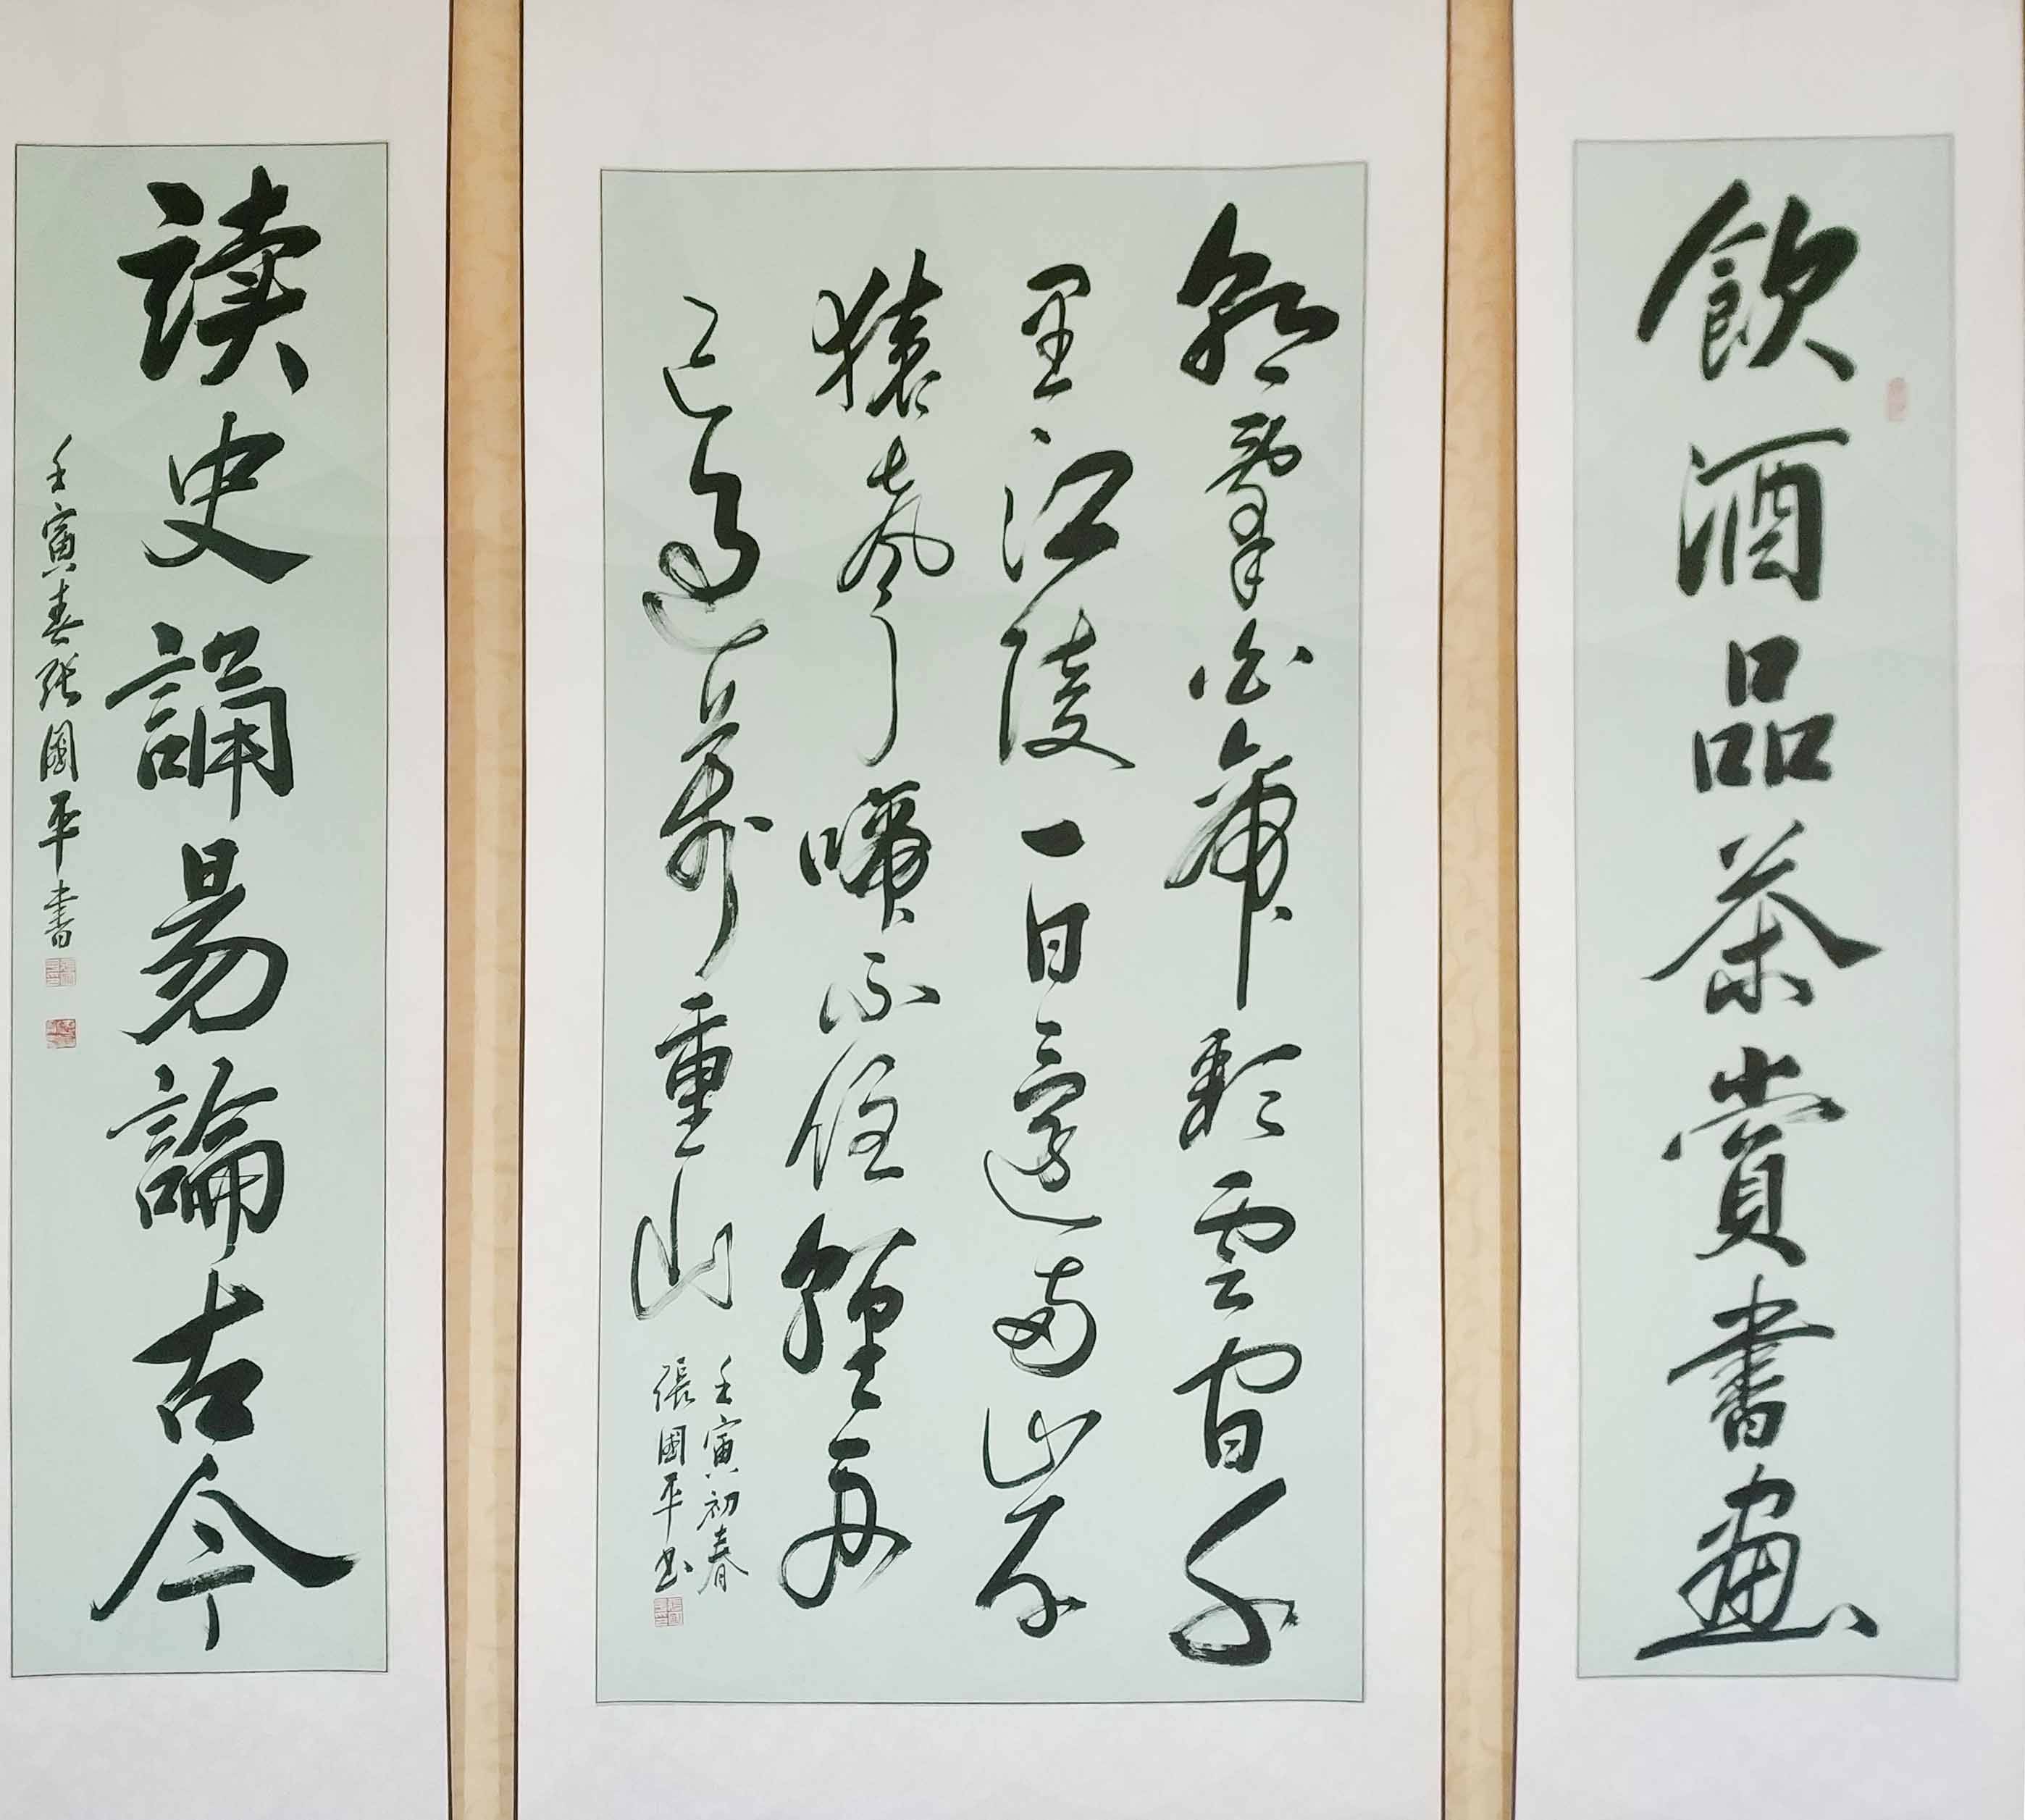 飲酒品茶賞書畫
朝辭白帝彩雲間千
里江陵一日還两岸
猿聲啼不住輕舟
已過萬重山
壬寅初春
張國平书
读史誦易論古今
壬寅春张國平書